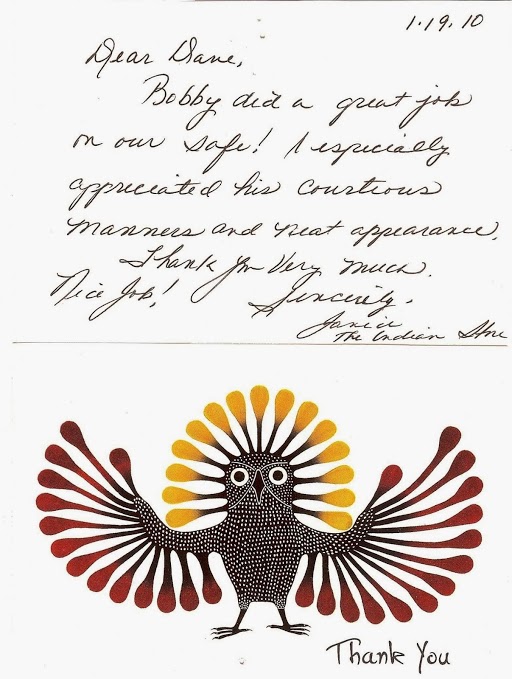 1.19.10
Dear Dane,
Bobby did a great job
on our safe! I especially
appreciated his courtious
manners and neat appearance.
Thank You Very Much.
Nice Job! Sincerely,
Janice
The Indian Store
Thank You